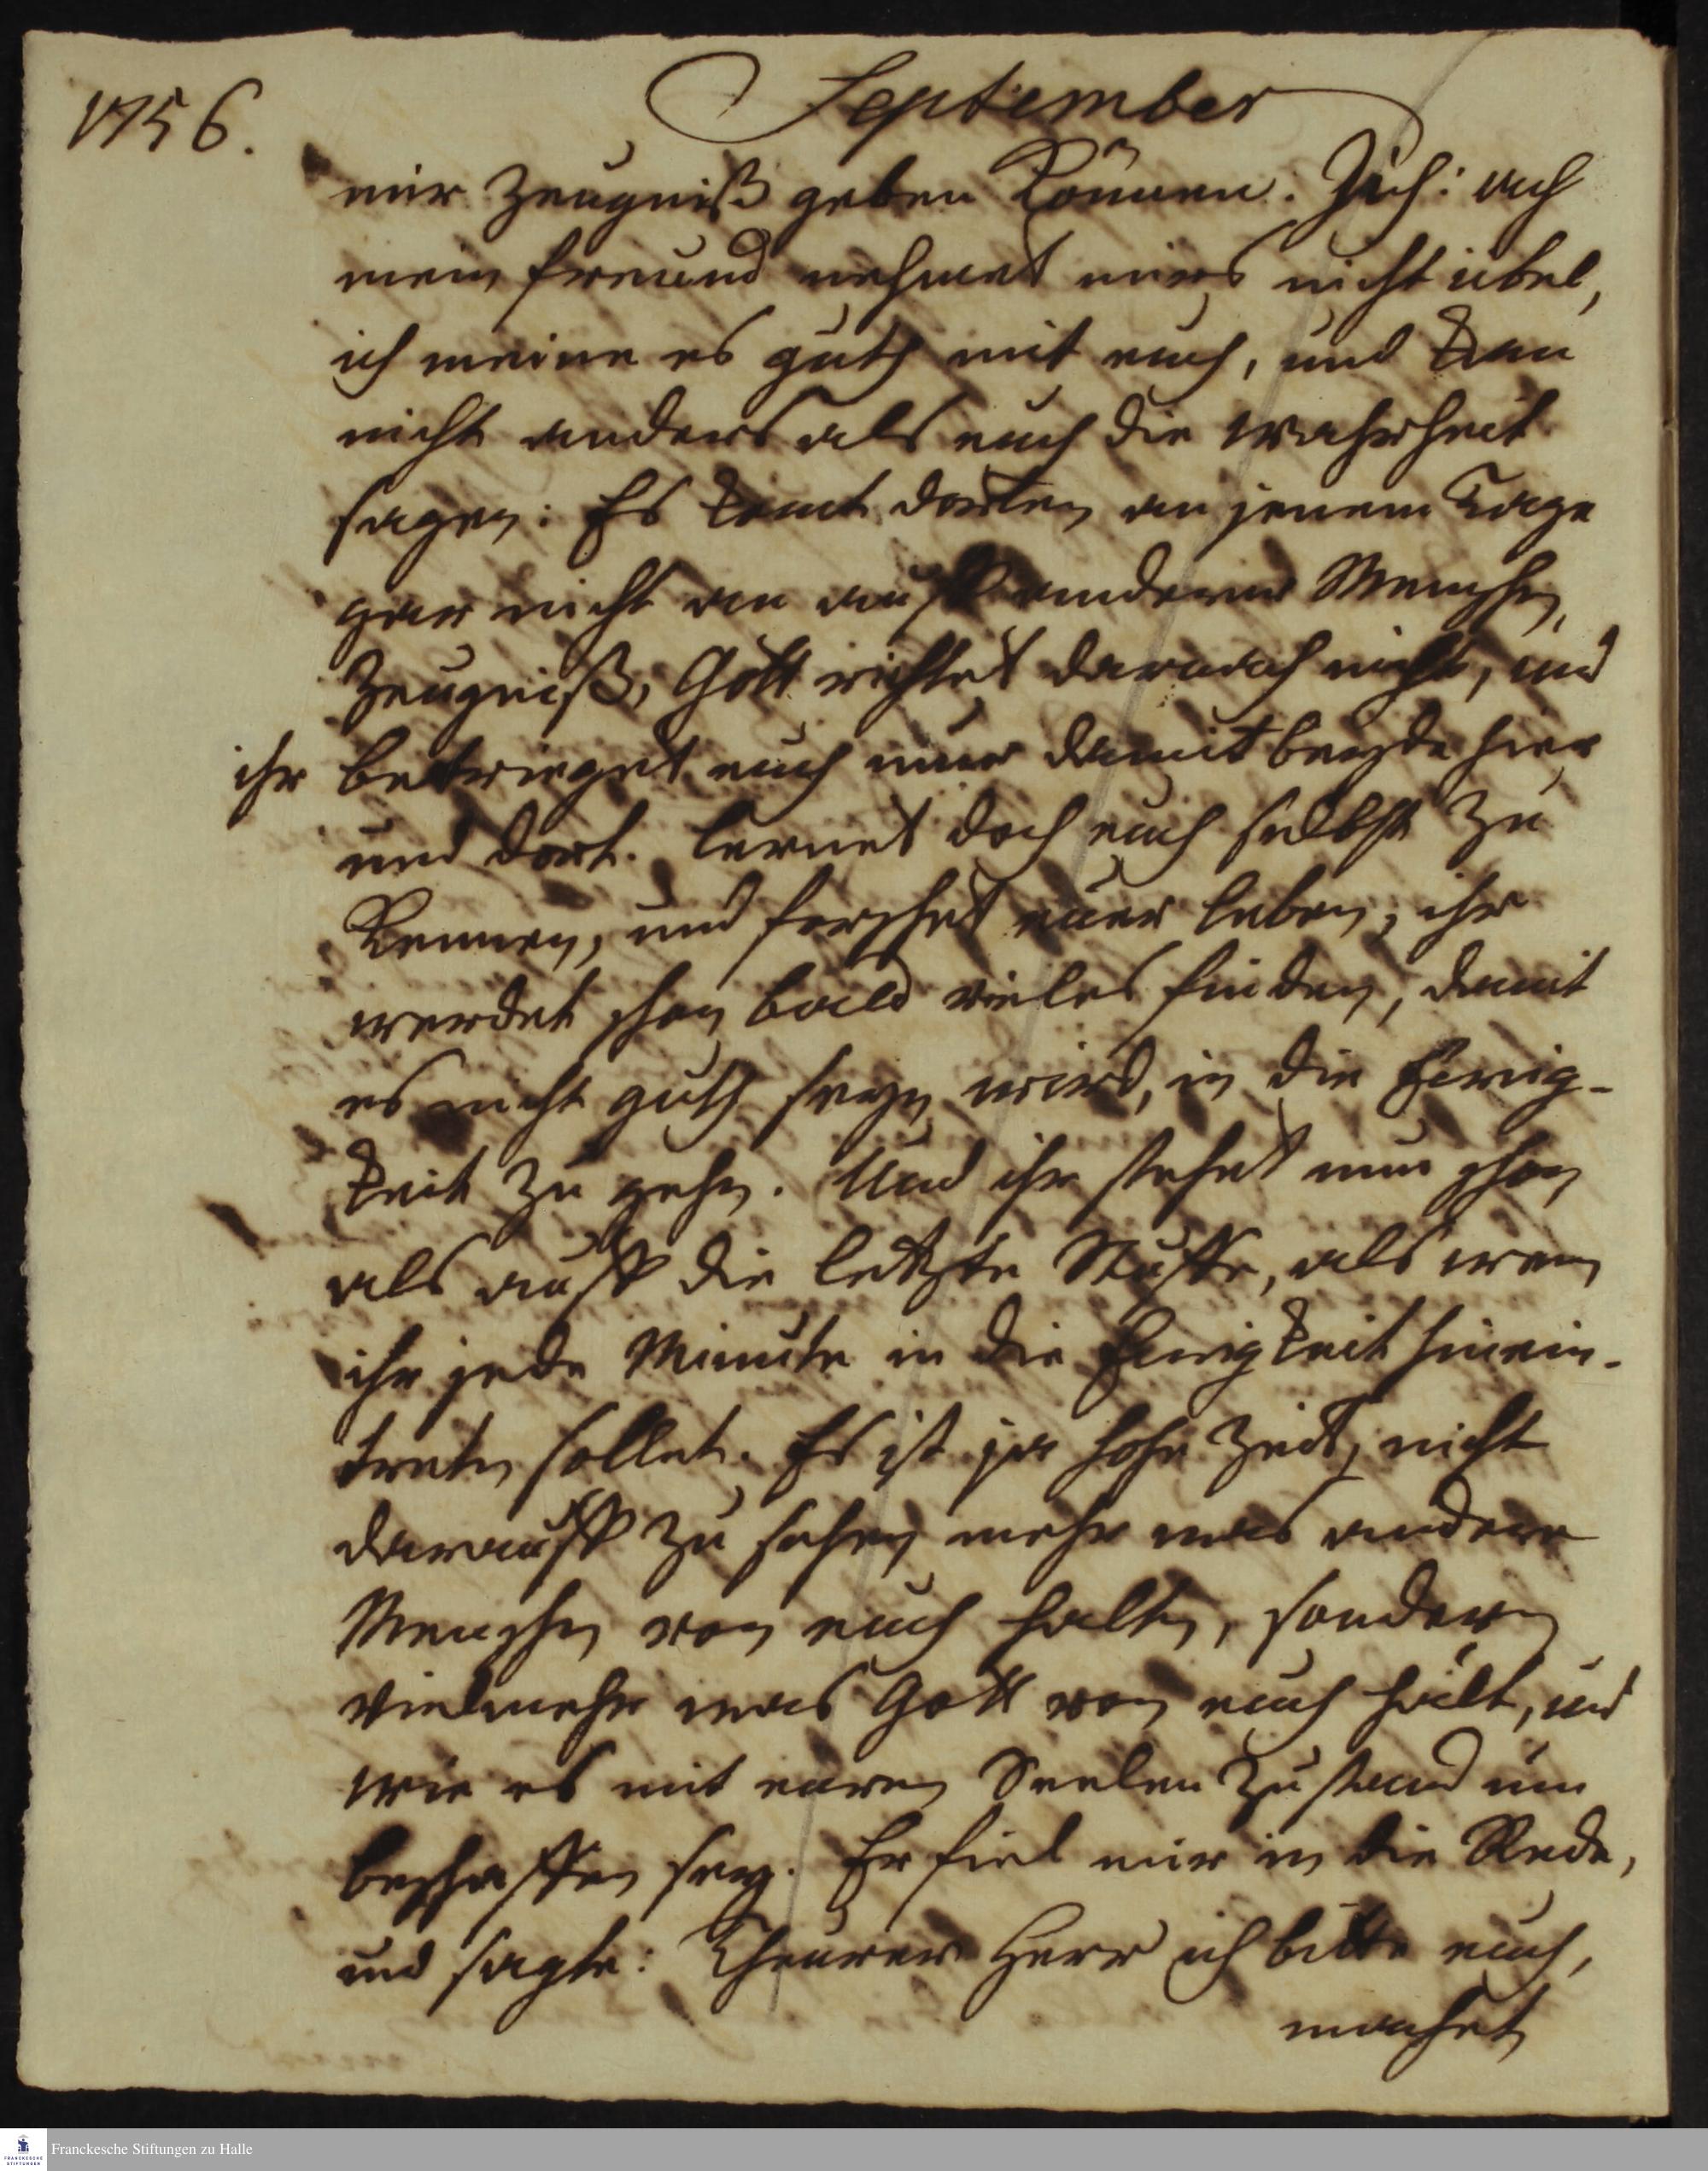 1756.
September
mir Zeugniß geben können. Ich: ach
mein freund nehmet mirs nicht übel,
ich meine es guth mit euch, und kan
nicht anders als euch die wahrheit
sagen: Es komt dorten an jenem Tage
gar nicht an auff anderer Menschen
Zeugniß, Gott richtet darnach nicht, und
ihr betrieget euch nur damit beyde hier
und dort. Lernet doch euch selbst zu
kennen, und forschet euer leben, ihr
werdet schon bald vieles finden, damit
es nicht guth seyn wird, in die Ewig-
keit zu gehen. Und ihr stehet nun schon
als auff die letzte Stuffe, als wenn
ihr jede Minute in die Ewigkeit hinein-
treten sollet. Es ist ja hohe Zeit, nicht
darauff zu sehen mehr was andere
Menschen von euch halten, sondern
vielmehr was Gott von euch hält, und
wie es mit euren Seelen Zustand üm
beschaffen sey. Er fiel mir in die Rede,
und sagte: Theurer Herr ich bitte euch,
machet
Franckesche Stiftungen zu Halle